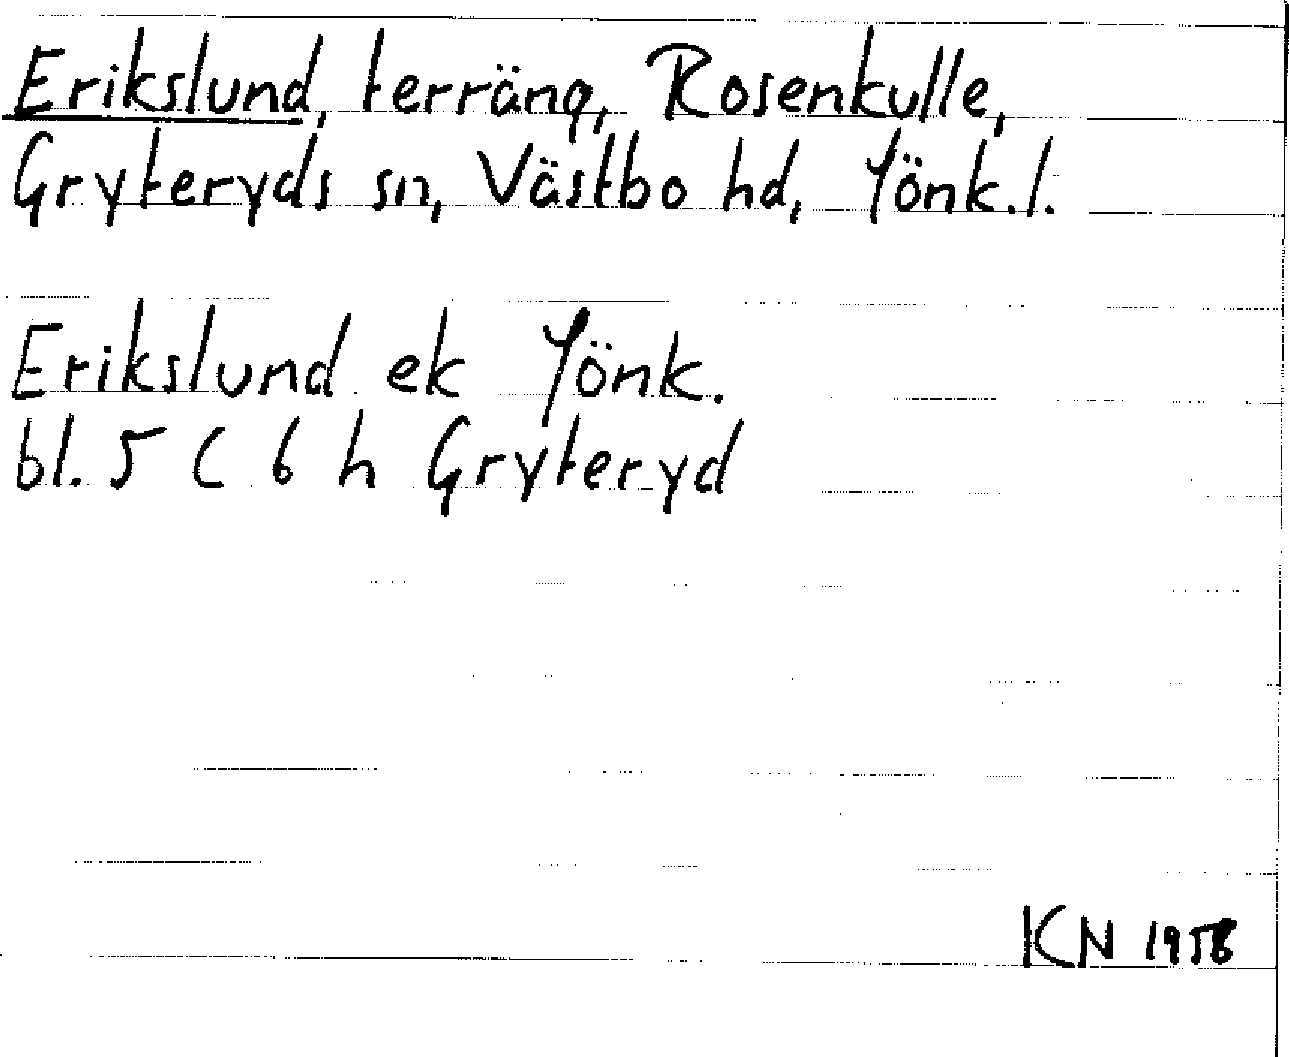 Erikslund, terräng, Rosenkulle,
Gryteryds sn, Västbo hd, Jönk. l.
Erikslund ek Jönk.
bl. 5 C 6 h Gryteryd
KN 1958